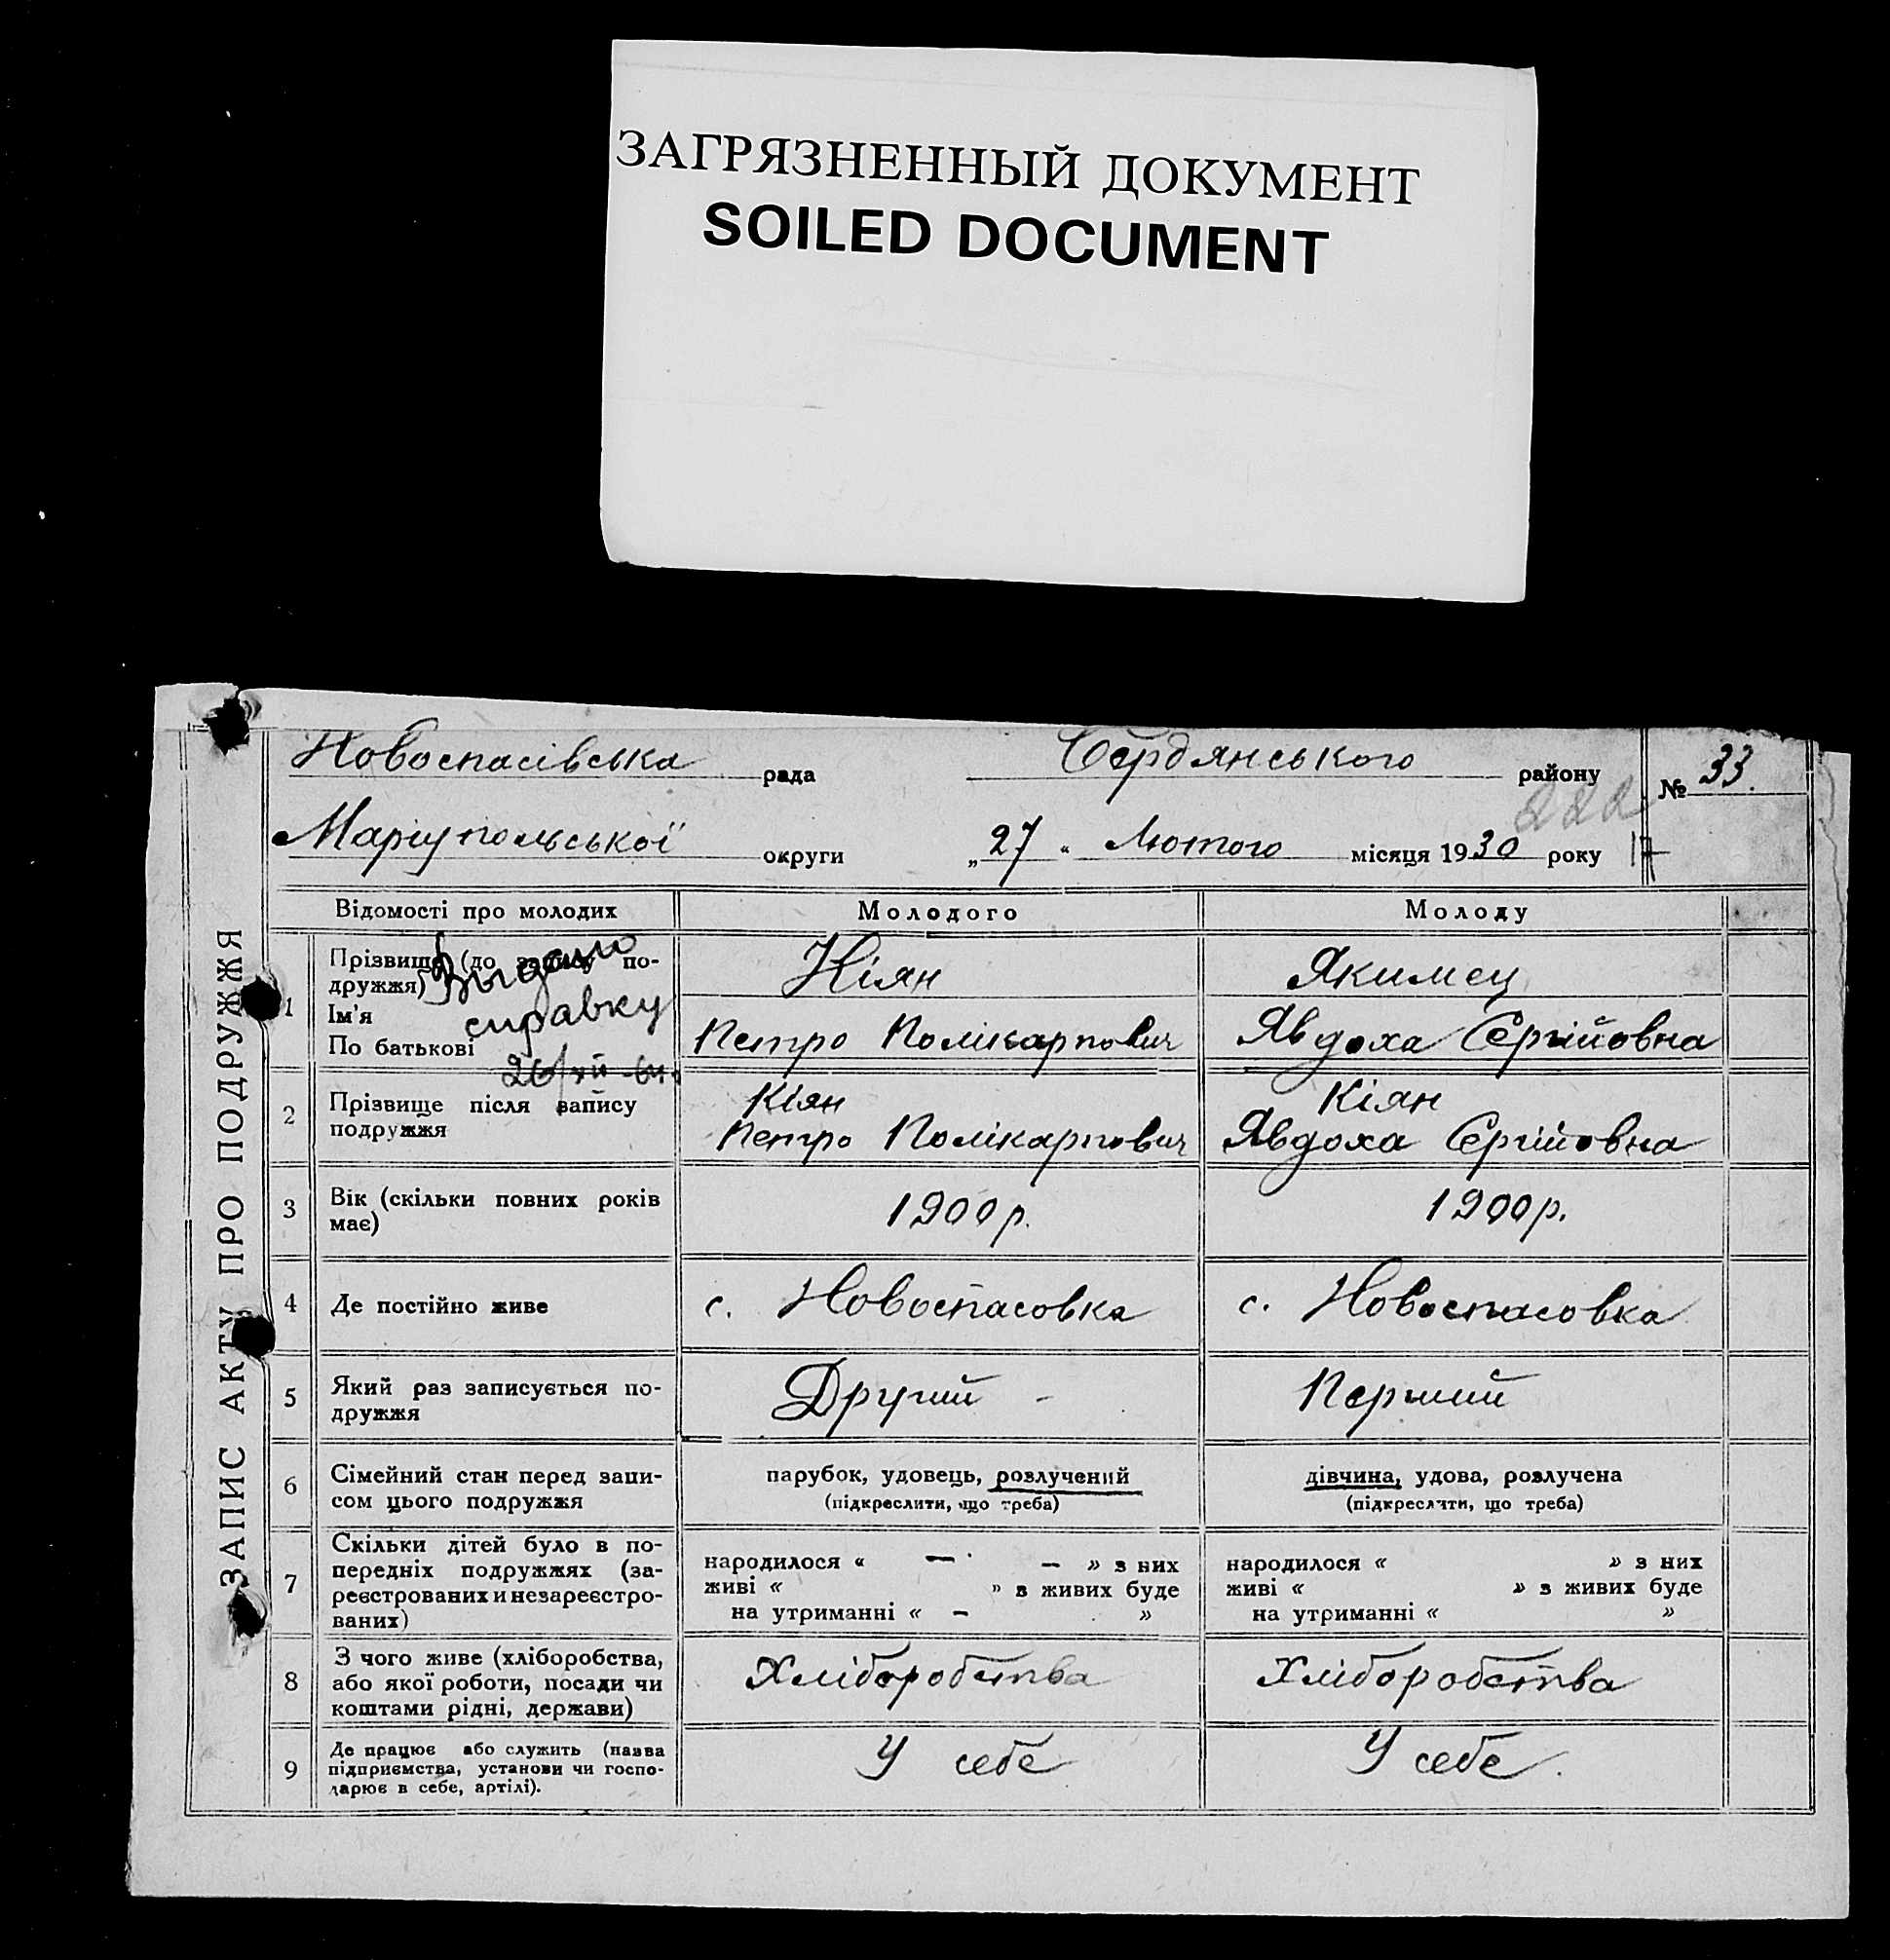 ЗАГРЯЗНЕННЫЙ ДОКУМЕНТ
SOILED DOCUMENT
ЗАПИС АКТУ ПРО ПОДРУЖЖЯ
Новоспасівська рада Бердянського району № 33.
222
Маріупольської округи „27“ Лютого місяця 1930 року 17
Відомості про молодих Молодого Молоду
1 Прізвище (до запису по-
дружжя)
Ім'я
По батькові
Выдано
справку
26/XII-
Кіян Якимец
Петро Полікарпович Явдоха Сергійовна
2 Прізвище після запису
подружжя
Кіян Кіян
Петро Полікарпович Явдоха Сергійовна
3 Вік (скільки повних років
має)
1900р. 1900р.
4 Де постійно живе с. Новоспасовка с. Новоспасовка
5 Який раз записується по-
дружжя
Другий - Перший
6 Сімейний стан перед запи-
сом цього подружжя
парубок, удовець, розлучений дівчина, удова, розлучена
(підкреслити, що треба) (підкреслити, що треба)
7 Скільки дітей було в по-
передніх подружжях (за-
реєстрованих и незареєстро-
ваних)
народилося « — — » з них народилося « » з них
живі « » з живих буде живі « » з живих буде
на утриманні « – » на утриманні « »
8 З чого живе (хліборобства,
або якої роботи, посади чи
коштами рідні, держави)
Хліборобства Хліборобства
9 Де працює або служить (назва
підприємства, установи чи госпо-
дарює в себе, артілі).
У себе У себе.